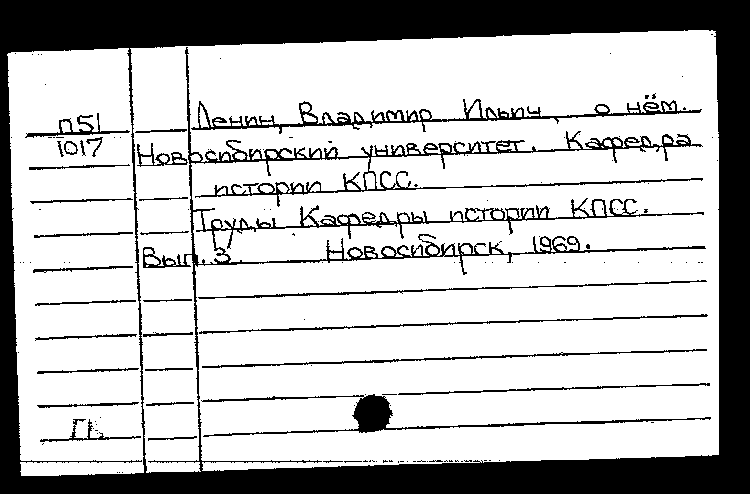 П51
1017
Ленин, Владимир Ильич, о нём.
Новосибирский университет. Кафедра
истории КПСС.
Труды Кафедры истории КПСС.
Вып. 3. Новосибирск, 1969.
ГК